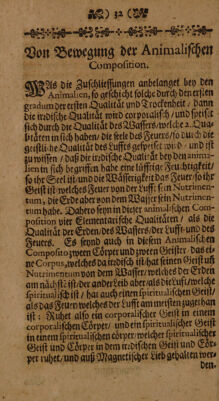 ) 32 (
Von Bewegung der Animalischen
Composition.
Was die Zuschliessungen anbelanget bey den
Animalien, so geschicht solche durch den ersten
gradum der ersten Qualität und Trockenheit / dann
die irdische Qualität wird corporalisch / und
sich durch die Qualität des Wassers / welche 2. Qua-
litäten in sich haben die sele des Feuers / so durch die
geistliche Qualität des Luffts wird / und ist
zu wissen / daß die irdische Qualität bey den anima-
lien in sich begriffen habe eine lüfftige Feuchtigkeit /
so ihr Seel ist und die Wässerigkeit des Feuer / so ihr
Geist ist welches Feuer von der Lufft sein Nutrimen-
tum, die Erde aber von dem Wasser sein Nutrimen-
tum habe. Dahero seyn in dieser animalischen Com-
position vier Elementarische Qualitäten / als die
Qualität der Erden / des Wassers / der Lufft und des
Feuers. Es seynd auch in diesem Animalischen
Composito zween Cörper und zween Geister, das ei-
ne Corpus, welches da irdisch ist hat seinen Geist und
Nutrimentum von dem Wasser / welches der Erden
am nächst ist: der ander Leib aber / als die Lufft / welche
spiritualisch ist / hat auch einen spiritualischen Geist /
als das Feuer / welches der Lufft am meisten zugethan
ist: Ruhet also ein corporalischer Geist in einem
corporalischen Cörper / und ein spiritualischer Geist
in einem spiritualischen Cörper / welcher spiritualischer
Geist und Cörper in dem irdischen Geist und Cör-
per ruhet / und auß Magnetischer Lieb gehalten wer-
den.